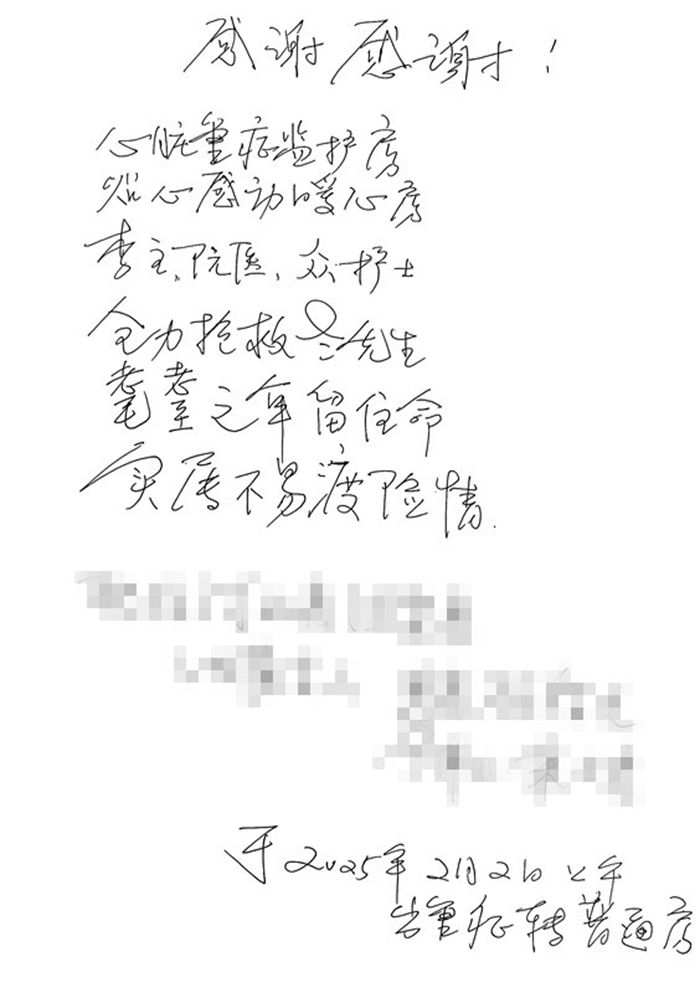 感谢感谢！
心脏重症监护房
贴心感动暖心房
李主、院医、众护士
全力抢救兰先生
耄耋之年留住命
实属不易渡险情.
于2025年2月2日上午
出重症转普通房